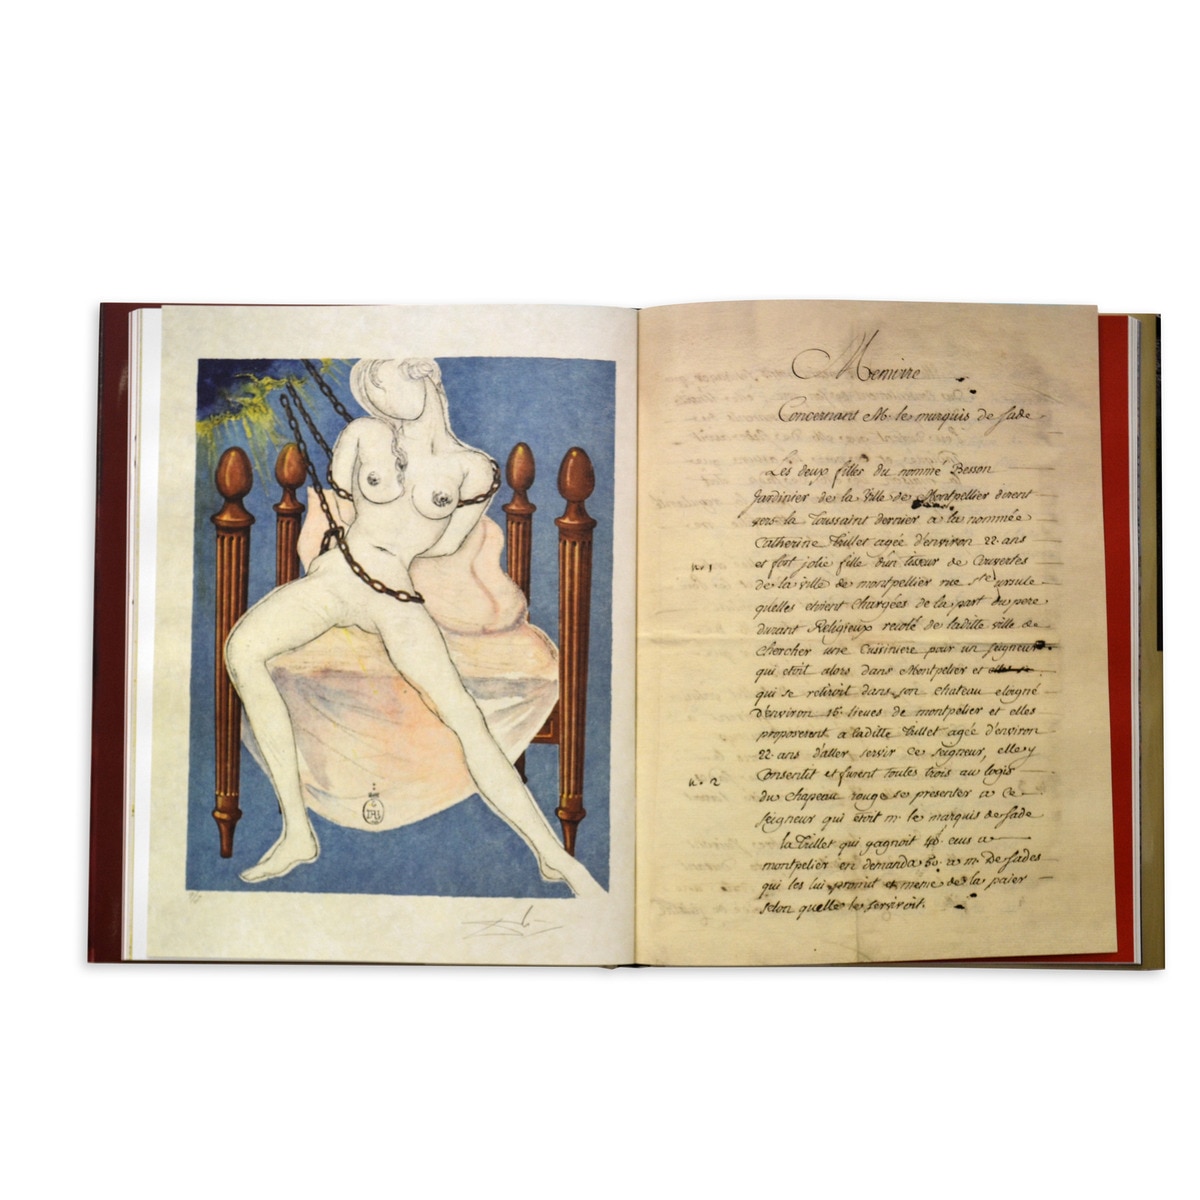 Memoire
Concernant M. le marquis de sade
Les deux filles du nommé Besson
Jardinier de la Ville de Montpellier dirent
vers la Toussaint dernier a la nommée
Catherine Trillet agée d'environ 22 ans
n.º 1 et fort jolie fille d'un tisseur de Couvertes
de la ville de montpellier rue Ste ursule
quelles etoient Chargées de la part du pere
durant Religieux recolé de ladille ville de
Chercher une Cuisiniere pour un seigneur
qui etoit alors dans Montpelier et
qui se retiroit dans son chateau eloigné
D'environ 16 lieues de montpelier et elles
proposerent a ladille Trillet agée d'environ
22 ans d'aller servir ce seigneur, elle y
n.º 2 Consentit et furent toutes trois au logis
du chapeau rouge se presenter a ce
seigneur qui étoit m. le marquis de Sade
la Trillet qui gagnoit 40 ecus a
montpelier en demanda 50 a m. De Sades
qui les lui promit et meme de la paier
selon quelle le serviroit.